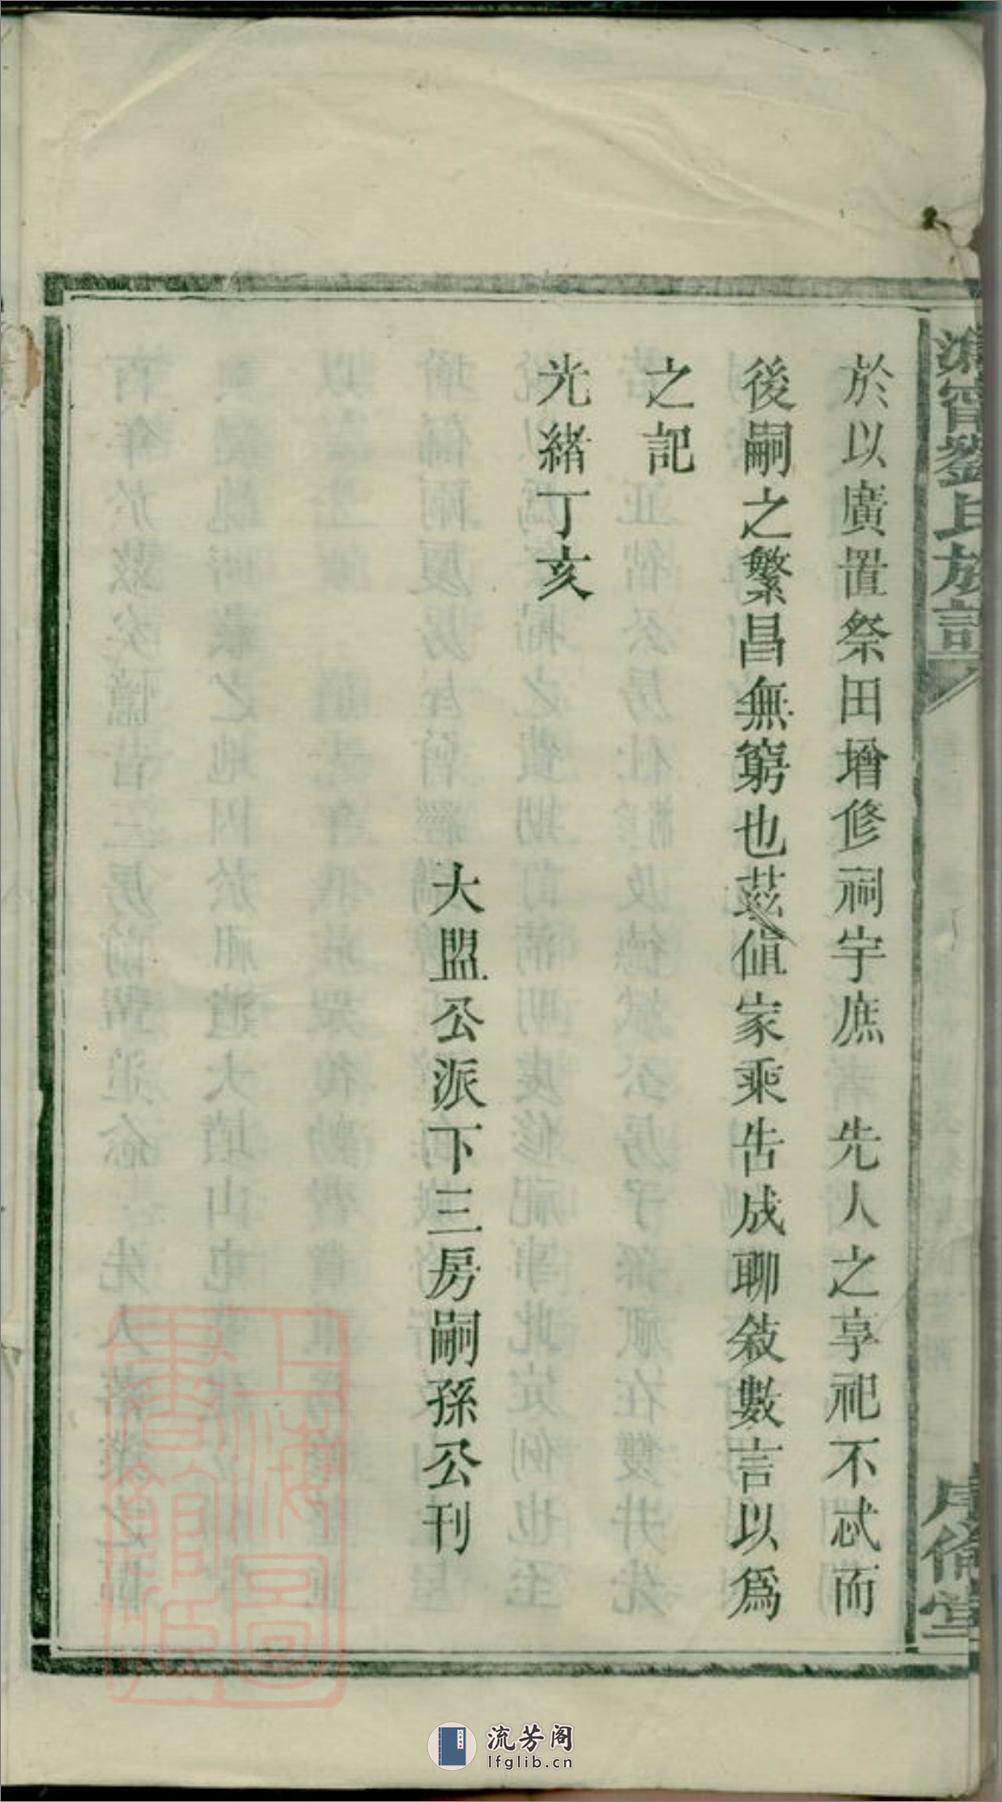 於以廣置祭田增修祠宇庶　先人之享祀不忒而
後嗣之繁昌無窮也茲値家乘告成聊敘數言以爲
之記
光緒丁亥
大盟公派下三房嗣孫公刊
甯劉氏族譜
倫堂
上海圖書館藏
流芳阁
lfglib.cn